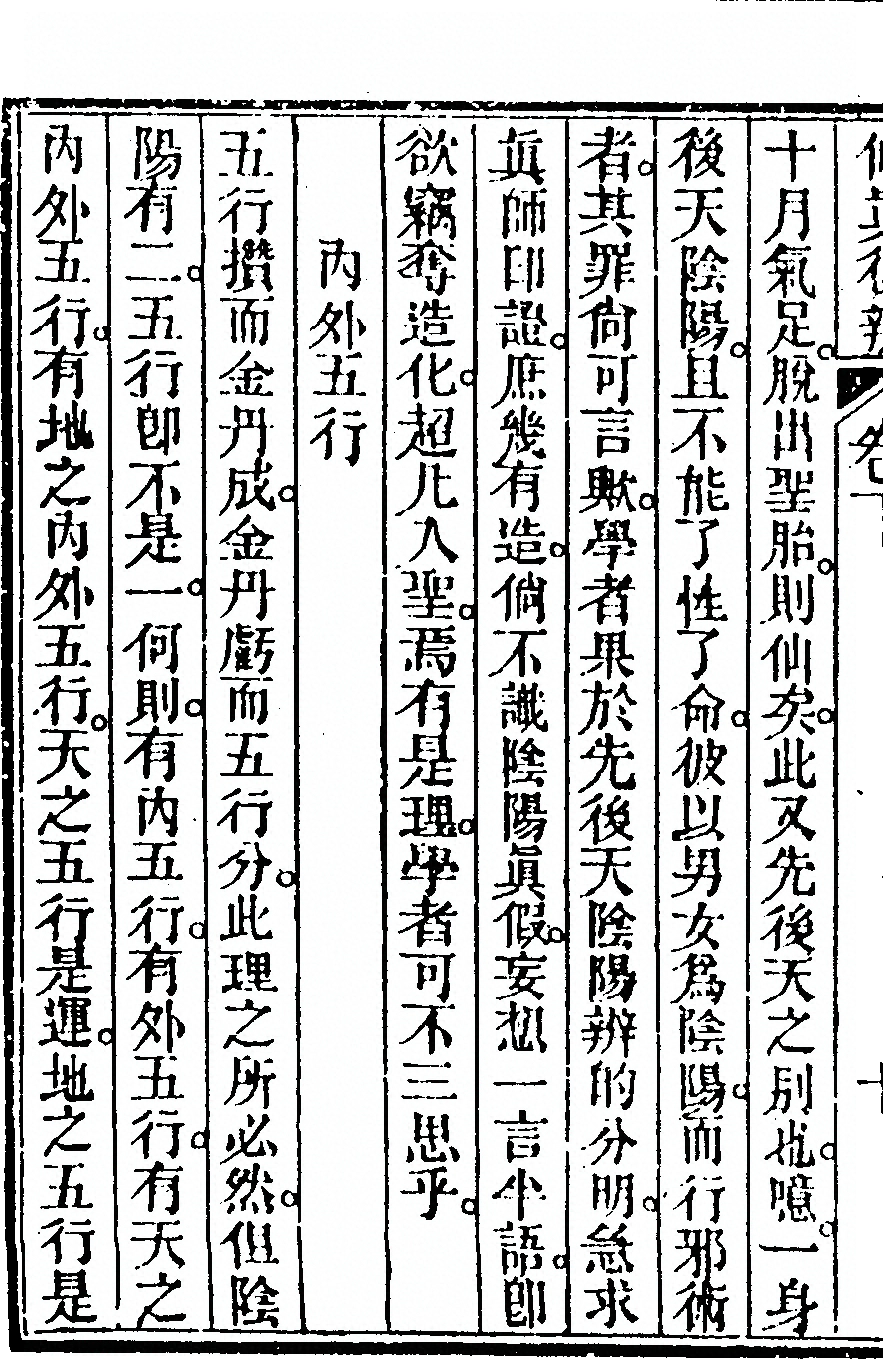 十月氣足。脫出聖胎。則仙矣。此又先後天之別也。噫。一身
後天陰陽。且不能了性了命。彼以男女爲陰陽。而行邪術
者。其罪尙可言歟。學者果於先後天陰陽辨的分明。急求
眞師印證。庶幾有造。倘不識陰陽眞假。妄想一言半語。卽
欲竊奪造化。超凡入聖。焉有是理。學者可不三思乎。
內外五行
五行攢而金丹成。金丹虧而五行分。此理之所必然。但陰
陽有二。五行卽不是一。何則。有內五行。有外五行。有天之
內外五行。有地之內外五行。天之五行是運。地之五行是